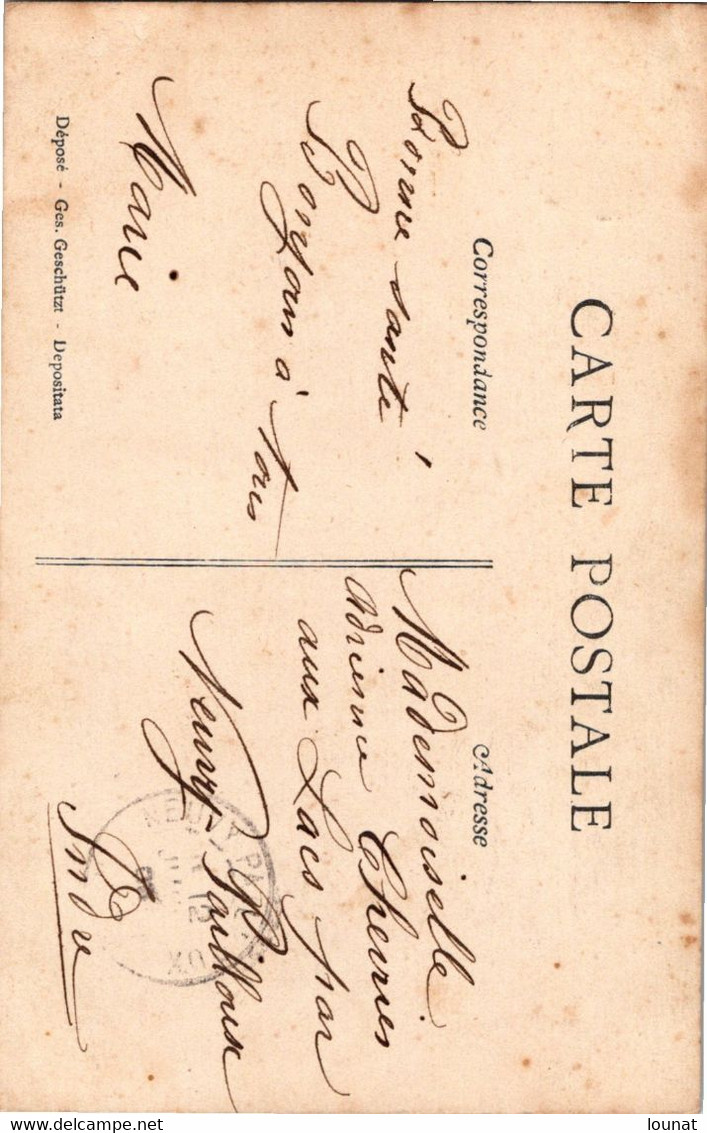 CARTE POSTALE
Correspondance
Bonne santé
Bonjour à tous
Marie
Déposé - Ges. Geschützt - Depositata
Adresse
Mademoiselle
Adrienne Chevrier
aux Lacs par
Neuvy Pailloux
Indre
NEUVY PAILLOUX
12
delcampe.net
lounat